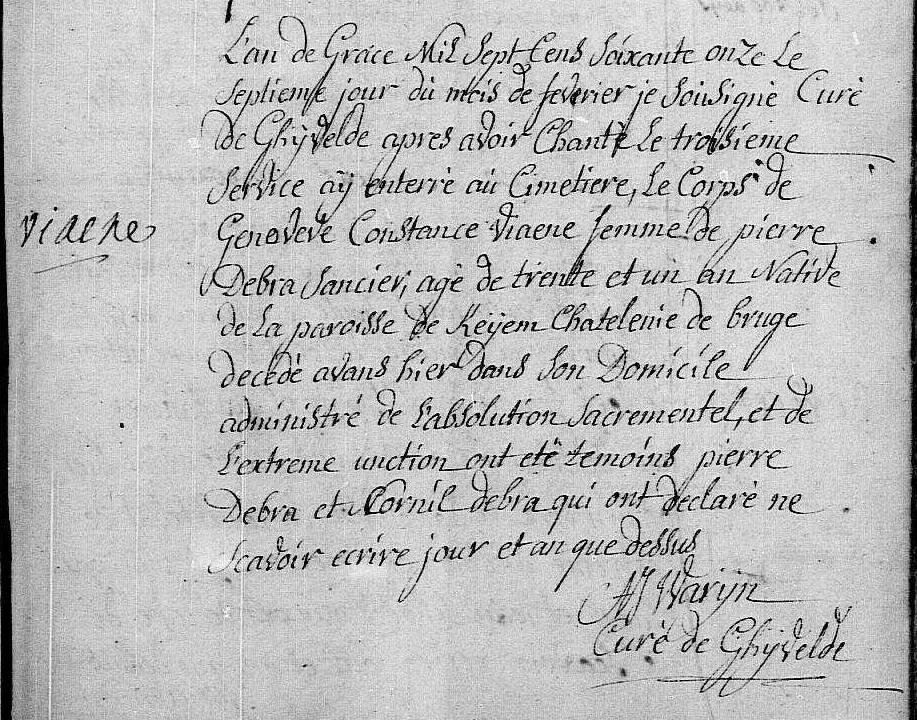 L'an de Grace Mil Sept Cens Soixante onze Le
Septieme jour du mois de fevrier je Sousigné Curé
de Ghyvelde apres avoir Chanté Le troisieme
Service aÿ enterré au Cimetiere, Le Corps de
viaene
Genoveve Constance Viaene femme de pierre
Debra Sancier, agé de trente et un an Native
de La paroisse de Keÿem Chatelenie de bruge
decedé avans hier dans Son Domicile
administré de L'absolution Sacrementel, et de
L'extreme unction ont eté temoins pierre
Debra et Cornil debra qui ont declaré ne
Scavoir ecrire jour et an que dessus
AJ Warÿn
Curé de Ghÿvelde